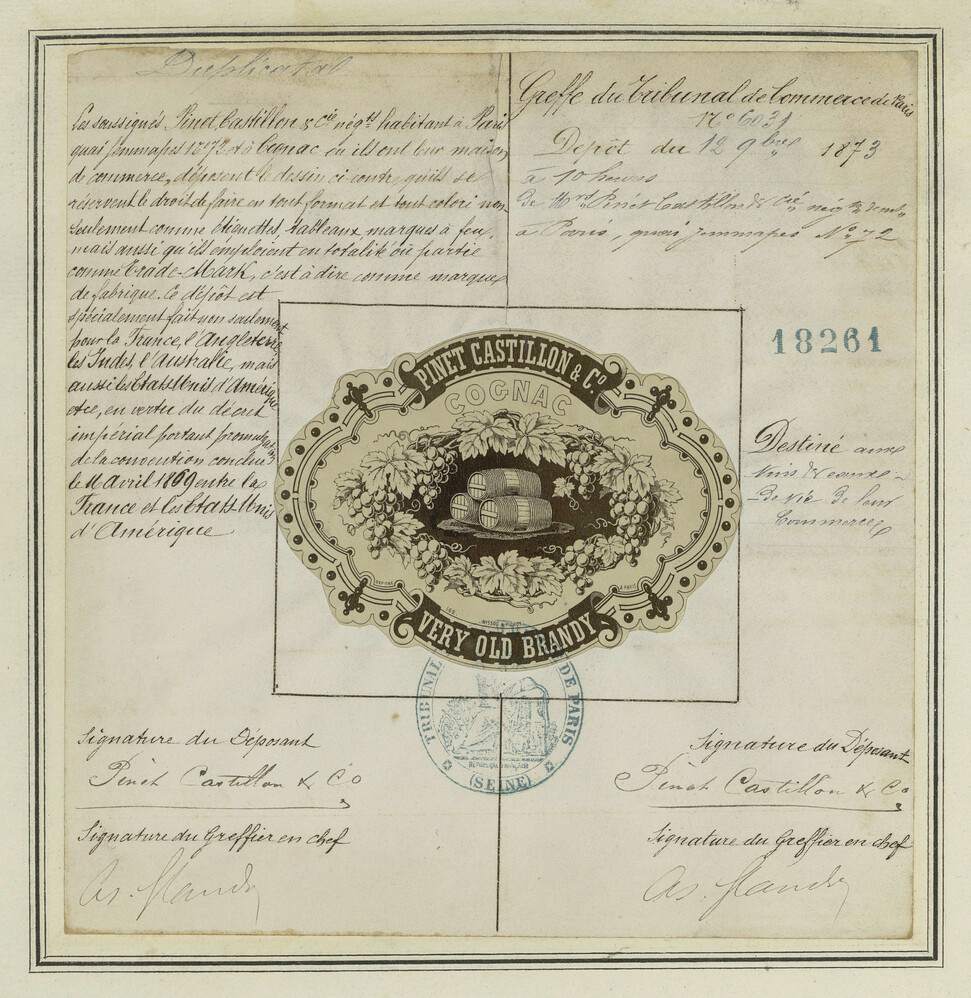 Duplicata
Les soussignés Pinet, Castillon & Cie négts habitant à Paris
quai Jemmapes No 72 et à Cognac où ils ont leur maison
de commerce, déposent le dessin ci-contre, qu'ils se
réservent le droit de faire en tout format et tout coloris non
seulement comme étiquettes, tableaux marques à feu,
mais aussi qu'ils emploient en totalité ou partie
comme Trade-Mark, c'est à dire comme marque
de fabrique. Ce dépôt est
spécialement fait non seulement
pour la France, l'Angleterre,
les Indes, l'Australie, mais
aussi les Etats Unis d'Amérique
etc, en vertu du décret
impérial portant promulgation
de la convention conclue
le 16 Avril 1869 entre la
France et les Etats Unis
d'Amérique
Greffe du Tribunal de Commerce de Paris
No 6031
Dépôt du 12 9bre 1873
à 10 heures
de Mrs Pinet Castillon & Cie négts demt
à Paris, quai Jemmapes No 72
18261
Destiné aux
vins & eaux-
de-vie de leur
Commerce
PINET CASTILLON & Co
COGNAC
VERY OLD BRANDY
TRIBUNAL DE PARIS
RÉPUBLIQUE FRANÇAISE
(SEINE)
Signature du Déposant
Pinet Castillon & Co
Signature du Greffier en chef
Signature du Déposant
Pinet Castillon & Co
Signature du Greffier en chef